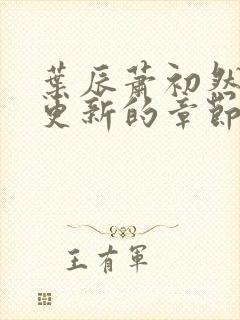 葉辰蕭初然
更新的章節
王有軍